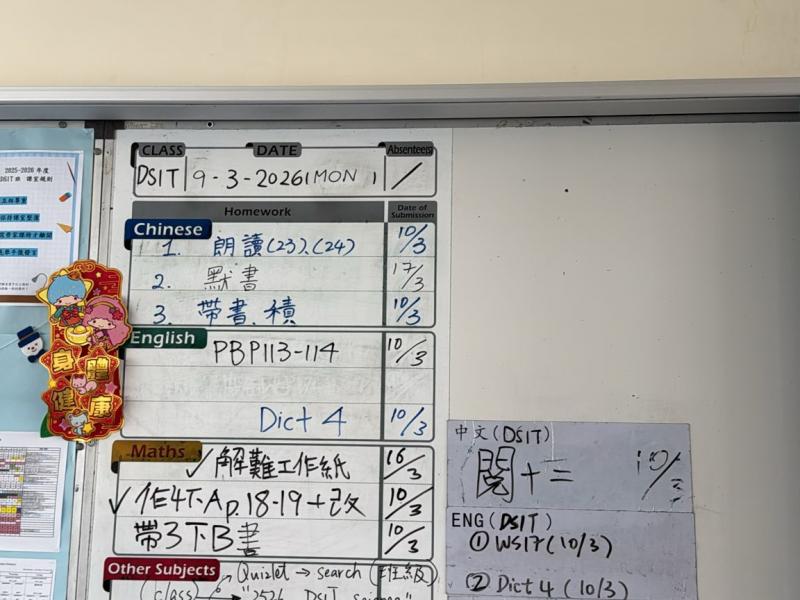 CLASS DATE Absentees
DSIT 9-3-2026 (MON) /
Homework Date of Submission
Chinese
1. 朗讀(23)、(24) 10/3
2. 默書 17/3
3. 帶書、積 10/3
English
PBP113-114 10/3
Dict 4 10/3
Maths
✓解難工作紙 16/3
✓作4下A p.18-19+改 10/3
帶3下B書 10/3
Other Subjects
Quizlet → search
class
"2526 DSIT
2025-2026 年度
DSIT班 課室規則
身體健康
中文(DSIT)
閱十二 10/3
ENG (DSIT)
① WS17 (10/3)
② Dict 4 (10/3)